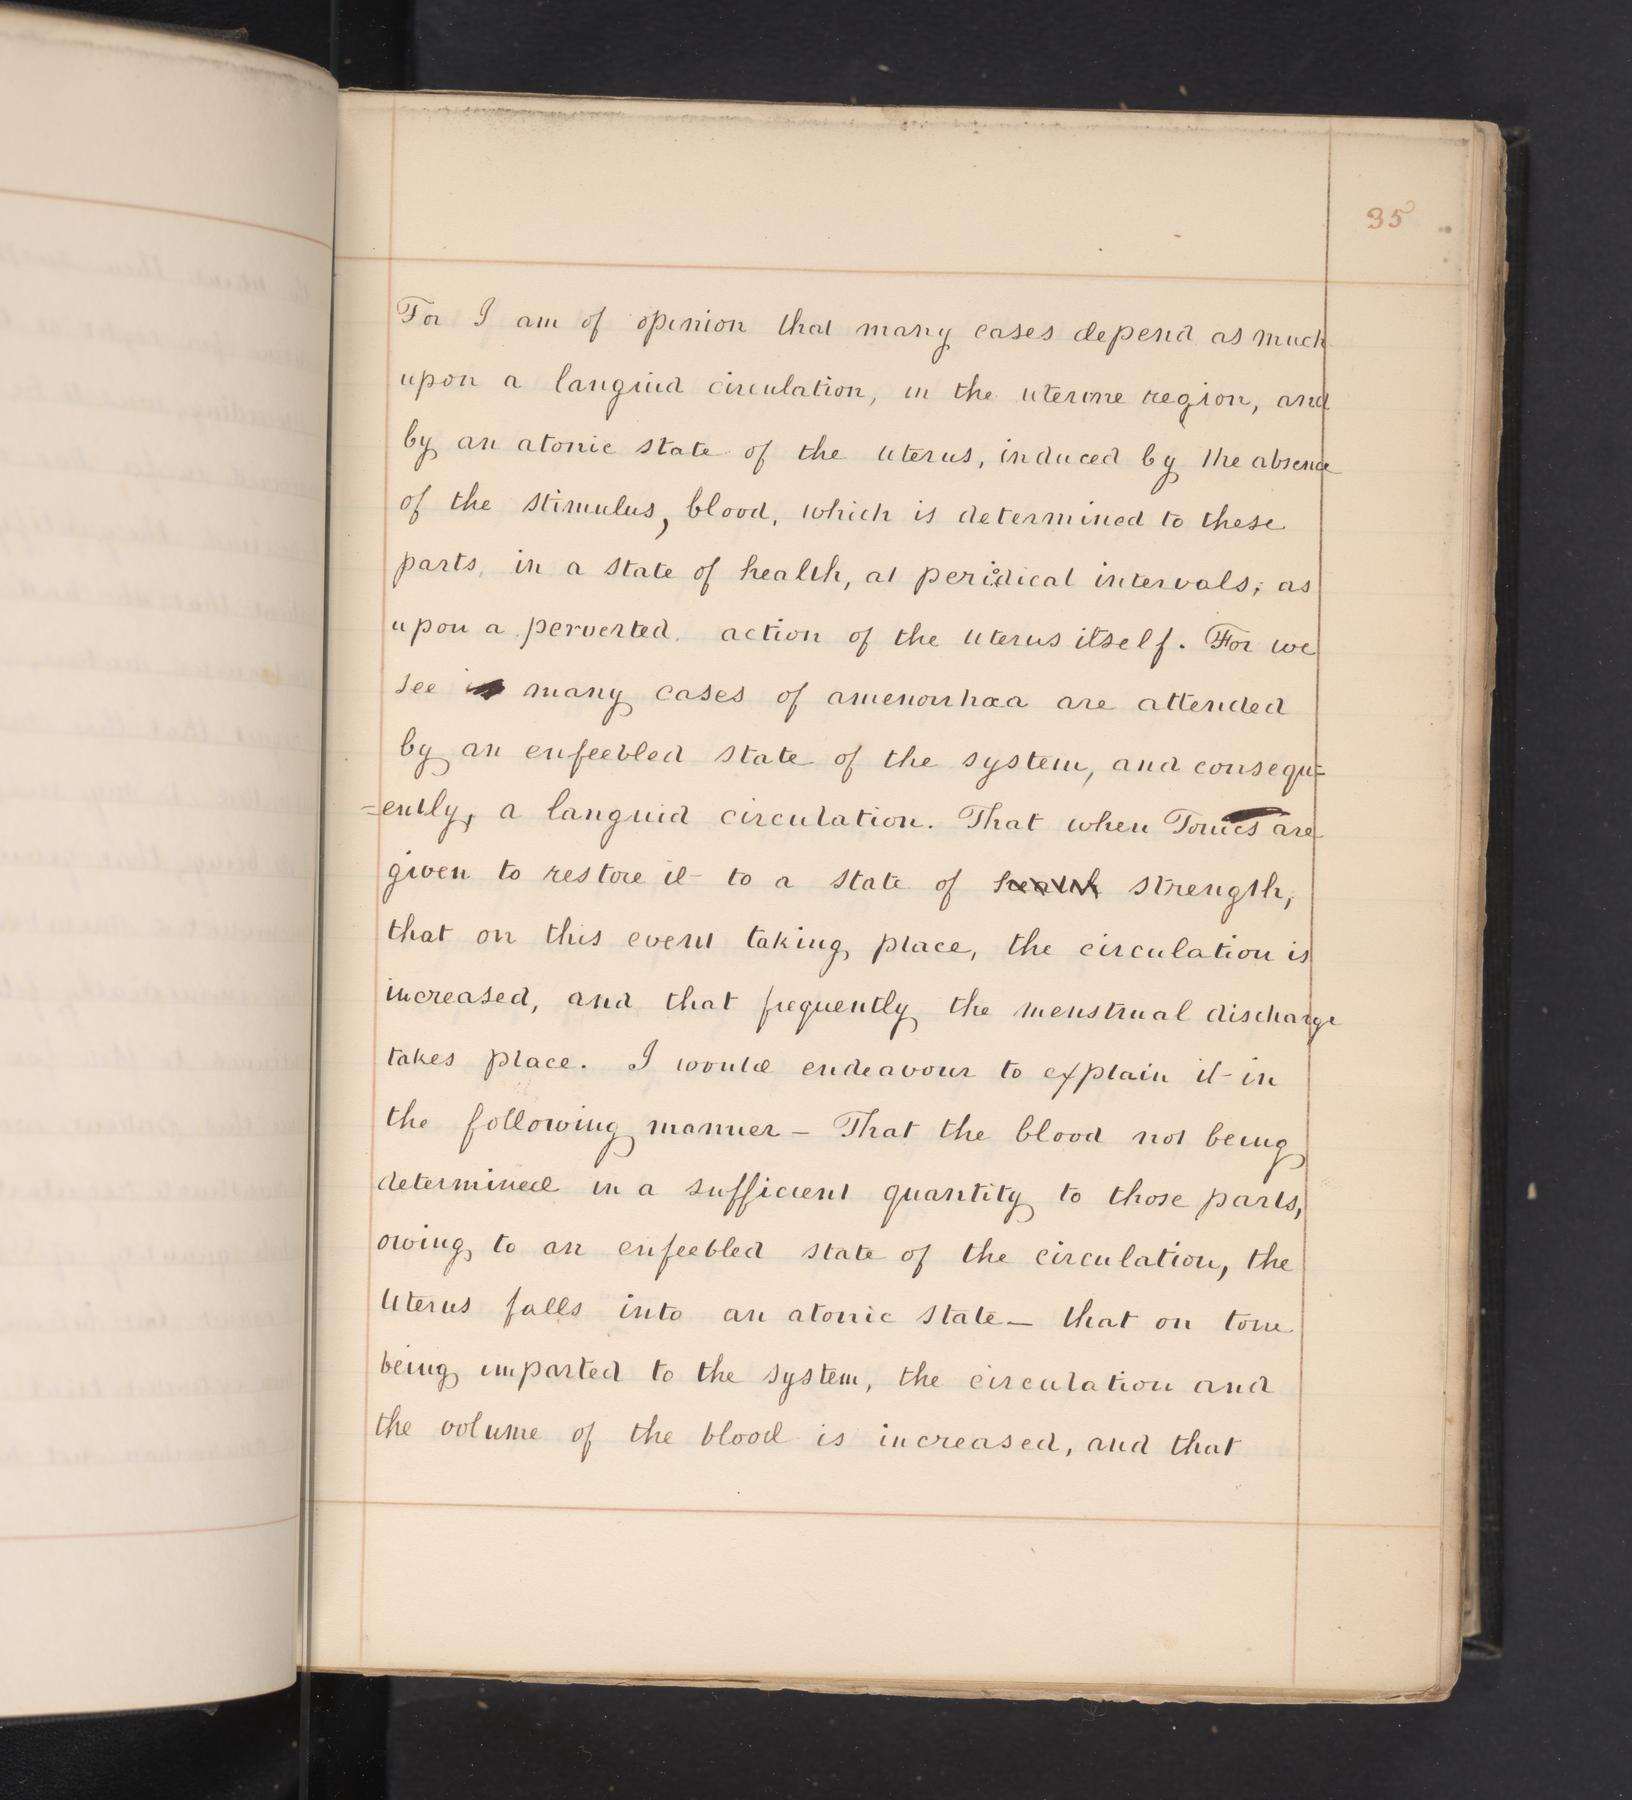 35
For I am of opinion that many cases depend as much
upon a languid circulation, in the uterine region, and
by an atonic state of the uterus, induced by the absence
of the stimulus, blood, which is determined to these
parts, in a state of health, at peridical intervals; as
upon a perverted action of the uterus itself. For we
see many cases of amenorrhœa are attended
by an enfeebled state of the system, and consequ=
=ently, a languid circulation. That when Tonics are
given to restore it to a state of health strength,
that on this event taking place, the circulation is
increased, and that frequently the menstrual discharge
takes place. I would endeavour to explain it in
the following manner — That the blood not being
determined in a sufficient quantity to those parts,
owing to an enfeebled state of the circulation, the
uterus falls into an atonic state — that on tone
being imparted to the system, the circulation and
the volume of the blood is increased, and that